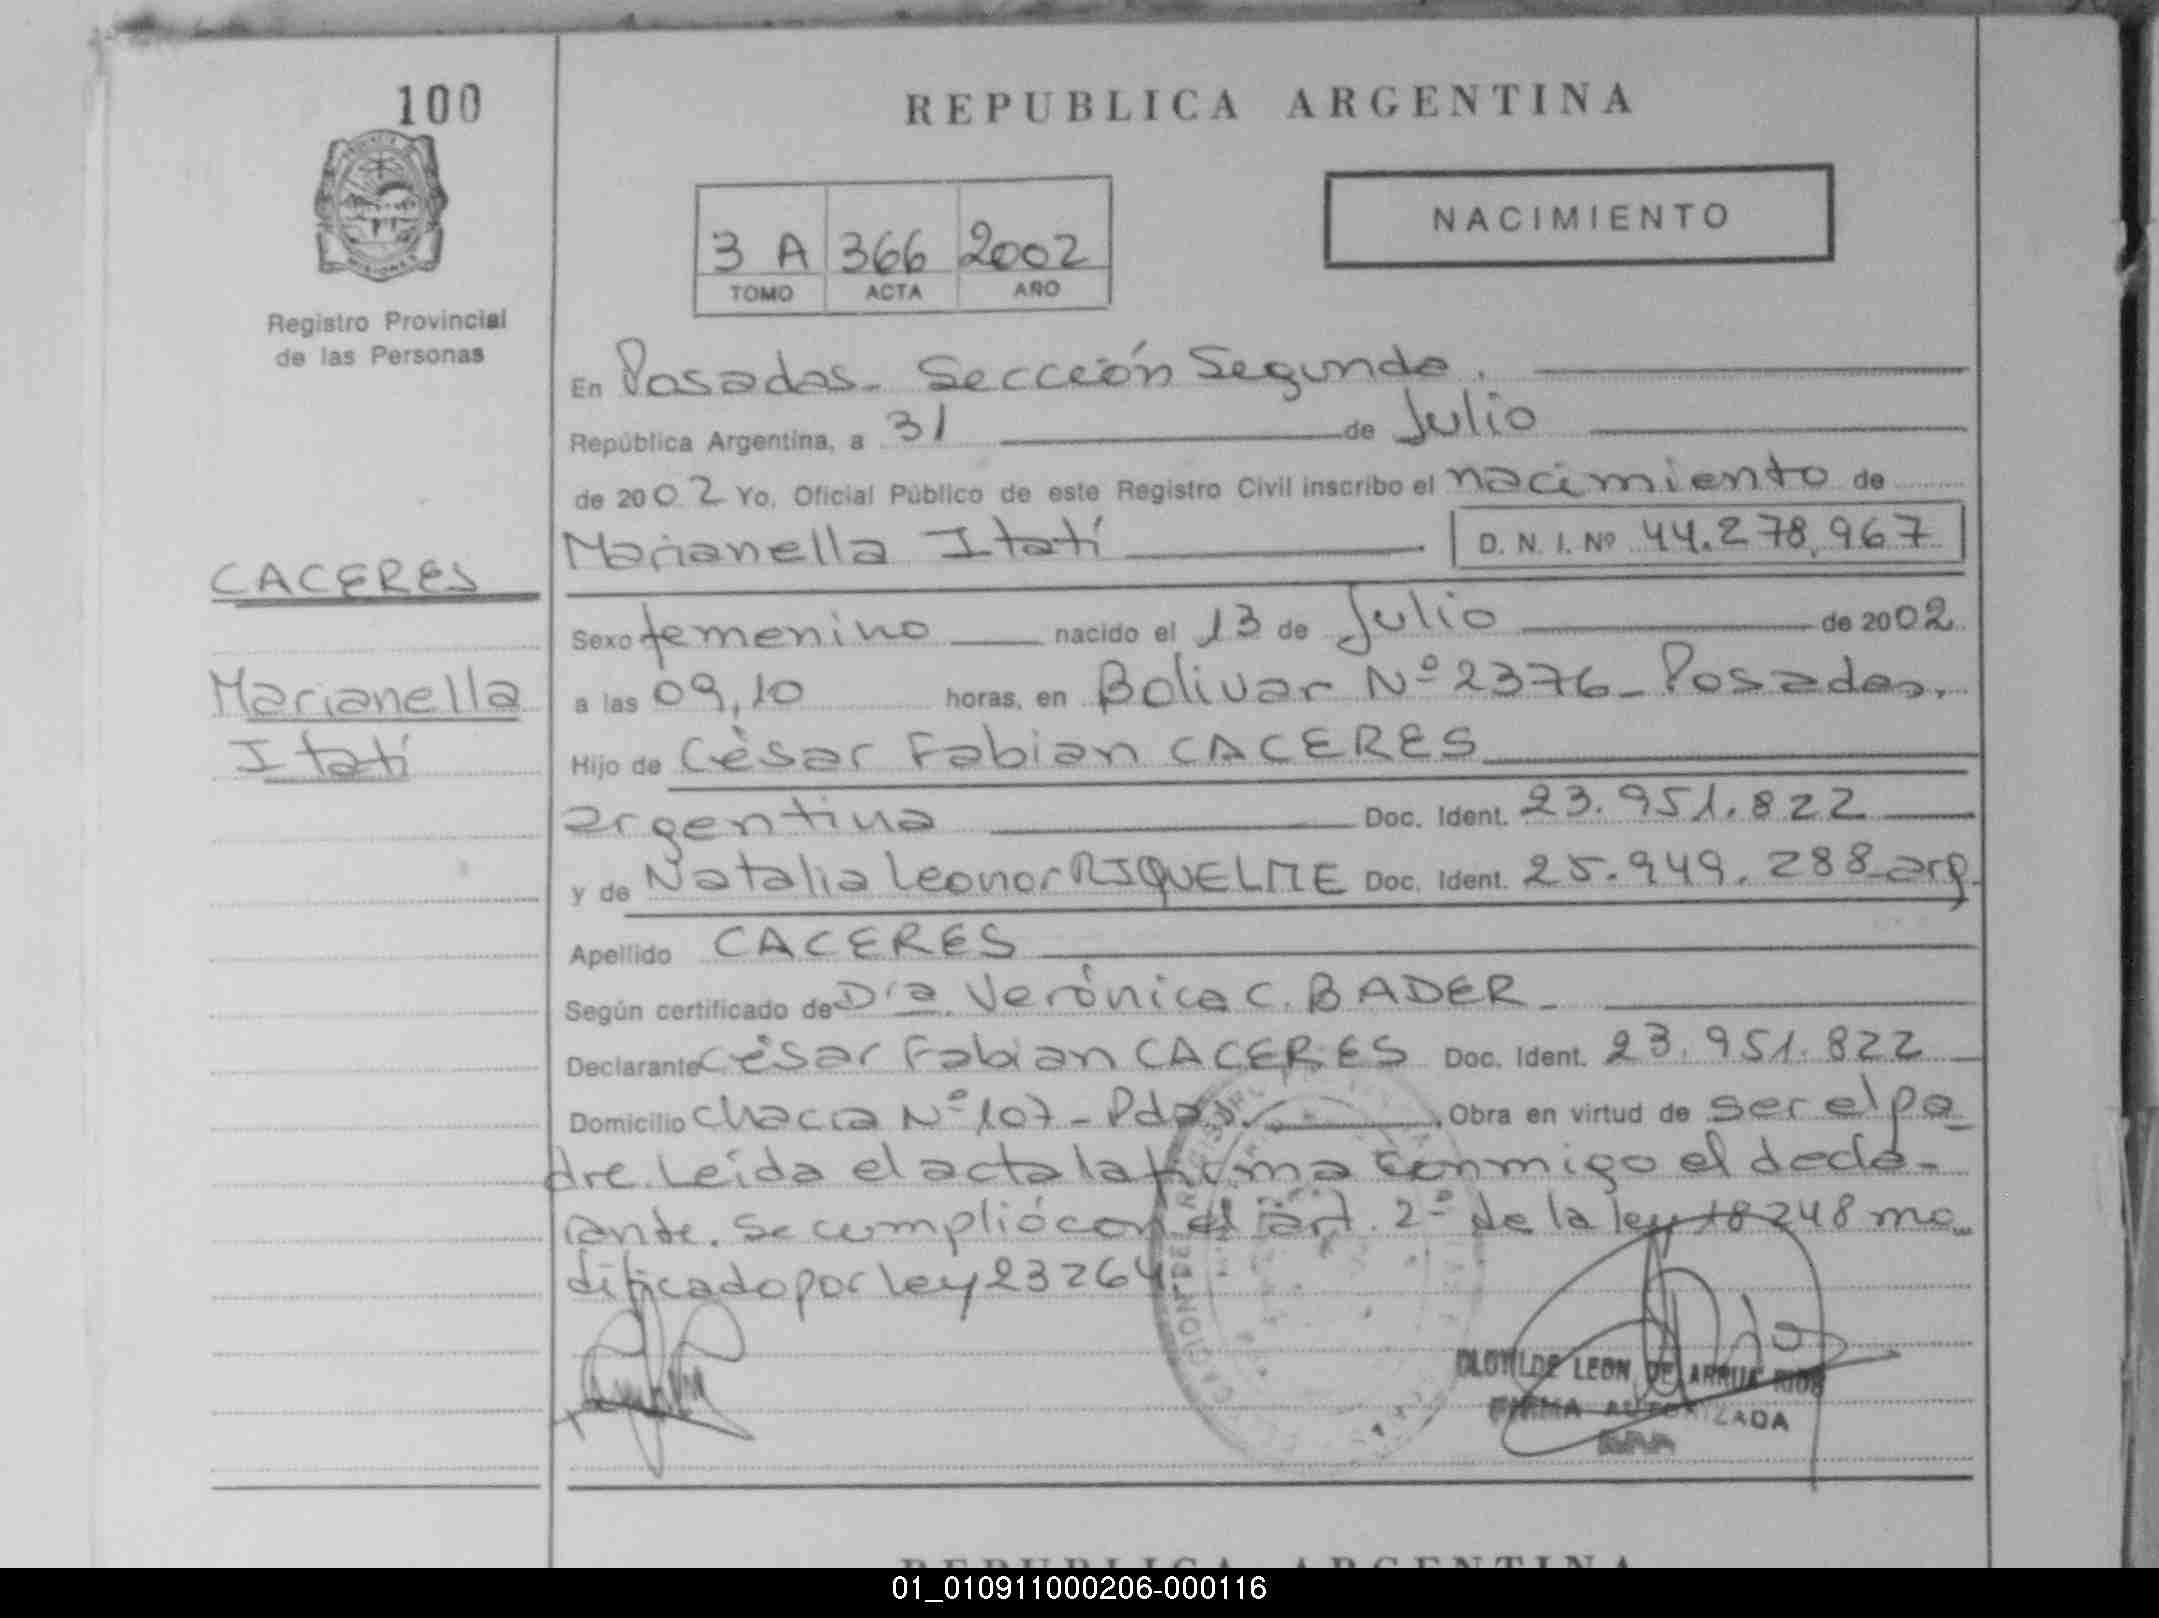 100
REPUBLICA ARGENTINA
NACIMIENTO
3 A 366 2002
TOMO ACTA AÑO
Registro Provincial
de las Personas
En Posadas - Sección Segunda.
República Argentina, a 31 de Julio
de 2002 Yo, Oficial Público de este Registro Civil inscribo el nacimiento de
Marianella Itatí D. N. I. Nº 44.278.967
CACERES
Marianella
Itatí
Sexo femenino nacido el 13 de Julio de 2002
a las 09,10 horas, en Bolivar Nº 2376 - Posadas.
Hijo de César Fabian CACERES
argentina Doc. Ident. 23.951.822
y de Natalia Leonor RIQUELME Doc. Ident. 25.949.288 - arg.
Apellido CACERES
Según certificado de Dra. Verónica C. BADER -
Declarante César Fabian CACERES Doc. Ident. 23.951.822
Domicilio Chacra Nº 107 - Pdas. Obra en virtud de ser el pa-
dre. Leída el acta la firma conmigo el decla-
rante. Se cumplió con el art. 2º de la ley 18248 mo-
dificado por ley 23264
CLOTILDE LEON DE ARRUA RIOS
FIRMA AUTORIZADA
REPUBLICA ARGENTINA
01_010911000206-000116